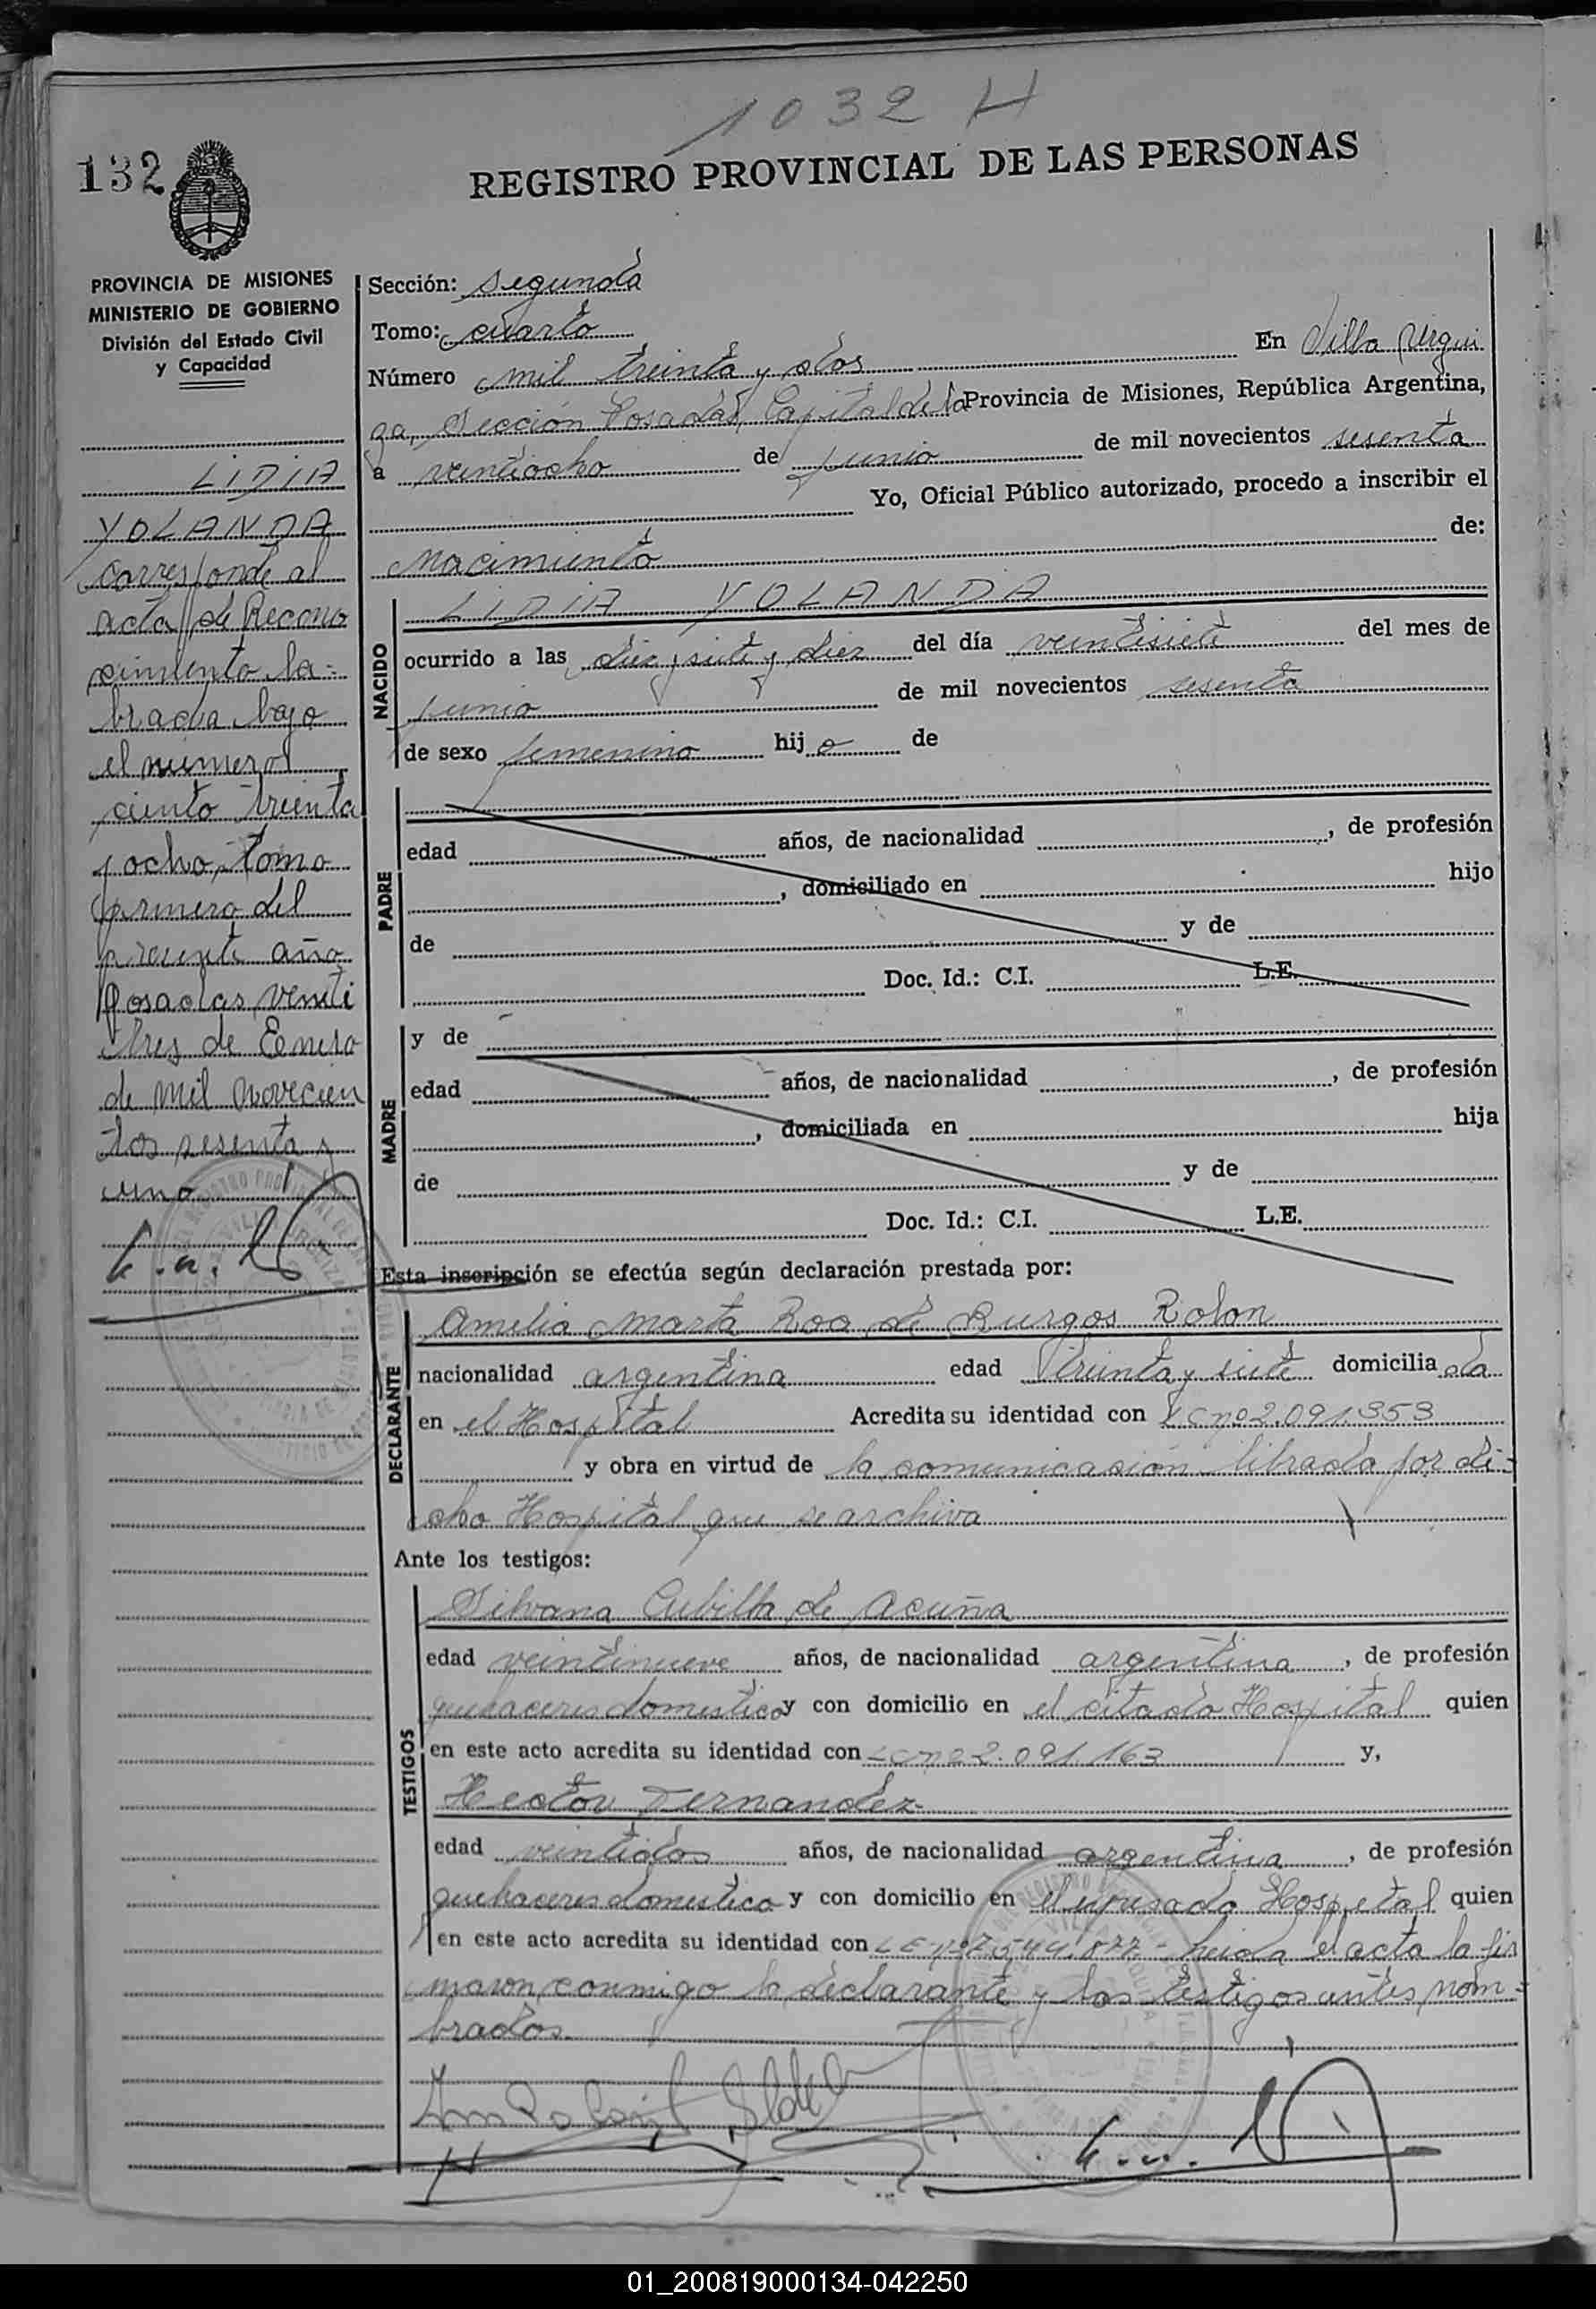 1032 H
132
REGISTRO PROVINCIAL DE LAS PERSONAS
PROVINCIA DE MISIONES
MINISTERIO DE GOBIERNO
División del Estado Civil
y Capacidad
LIDIA
YOLANDA
Corresponde al
acta de Recono
cimiento la-
brada bajo
el número
ciento treinta
y ocho, tomo
primero del
presente año
Posadas, veinti
tres de Enero
de mil novecien
tos sesenta y
uno
Sección: segunda
Tomo: cuarto
Número mil treinta y dos En Villa Urqui
za, Sección Posadas, Capital de la Provincia de Misiones, República Argentina,
a veintiocho de junio de mil novecientos sesenta
Yo, Oficial Público autorizado, procedo a inscribir el
nacimiento de:
NACIDO
LIDIA YOLANDA
ocurrido a las diez y siete y diez del día veintisiete del mes de
junio de mil novecientos sesenta
de sexo femenino hij a de
PADRE
edad años, de nacionalidad , de profesión
, domiciliado en hijo
de y de
Doc. Id.: C.I. L.E.
MADRE
y de
edad años, de nacionalidad , de profesión
, domiciliada en hija
de y de
Doc. Id.: C.I. L.E.
Esta inscripción se efectúa según declaración prestada por:
DECLARANTE
Amelia Marta Roa de Burgos Rolon
nacionalidad argentina edad treinta y siete domicilia da
en el Hospital Acredita su identidad con LC nº 2.091.353
y obra en virtud de la comunicasión librada por di-
cho Hospital que se archiva
Ante los testigos:
TESTIGOS
Silvana Cubilla de Acuña
edad veintinueve años, de nacionalidad argentina, de profesión
quehaceres domestico y con domicilio en el citado Hospital quien
en este acto acredita su identidad con LC nº 2.091.163 y,
Hector Fernandez-
edad veintidos años, de nacionalidad argentina, de profesión
quehaceres domestico y con domicilio en el expresado Hospital quien
en este acto acredita su identidad con LE nº 7.544.877 - leida el acta la fir
maron conmigo la declarante y los testigos antes nom-
brados.
01_200819000134-042250